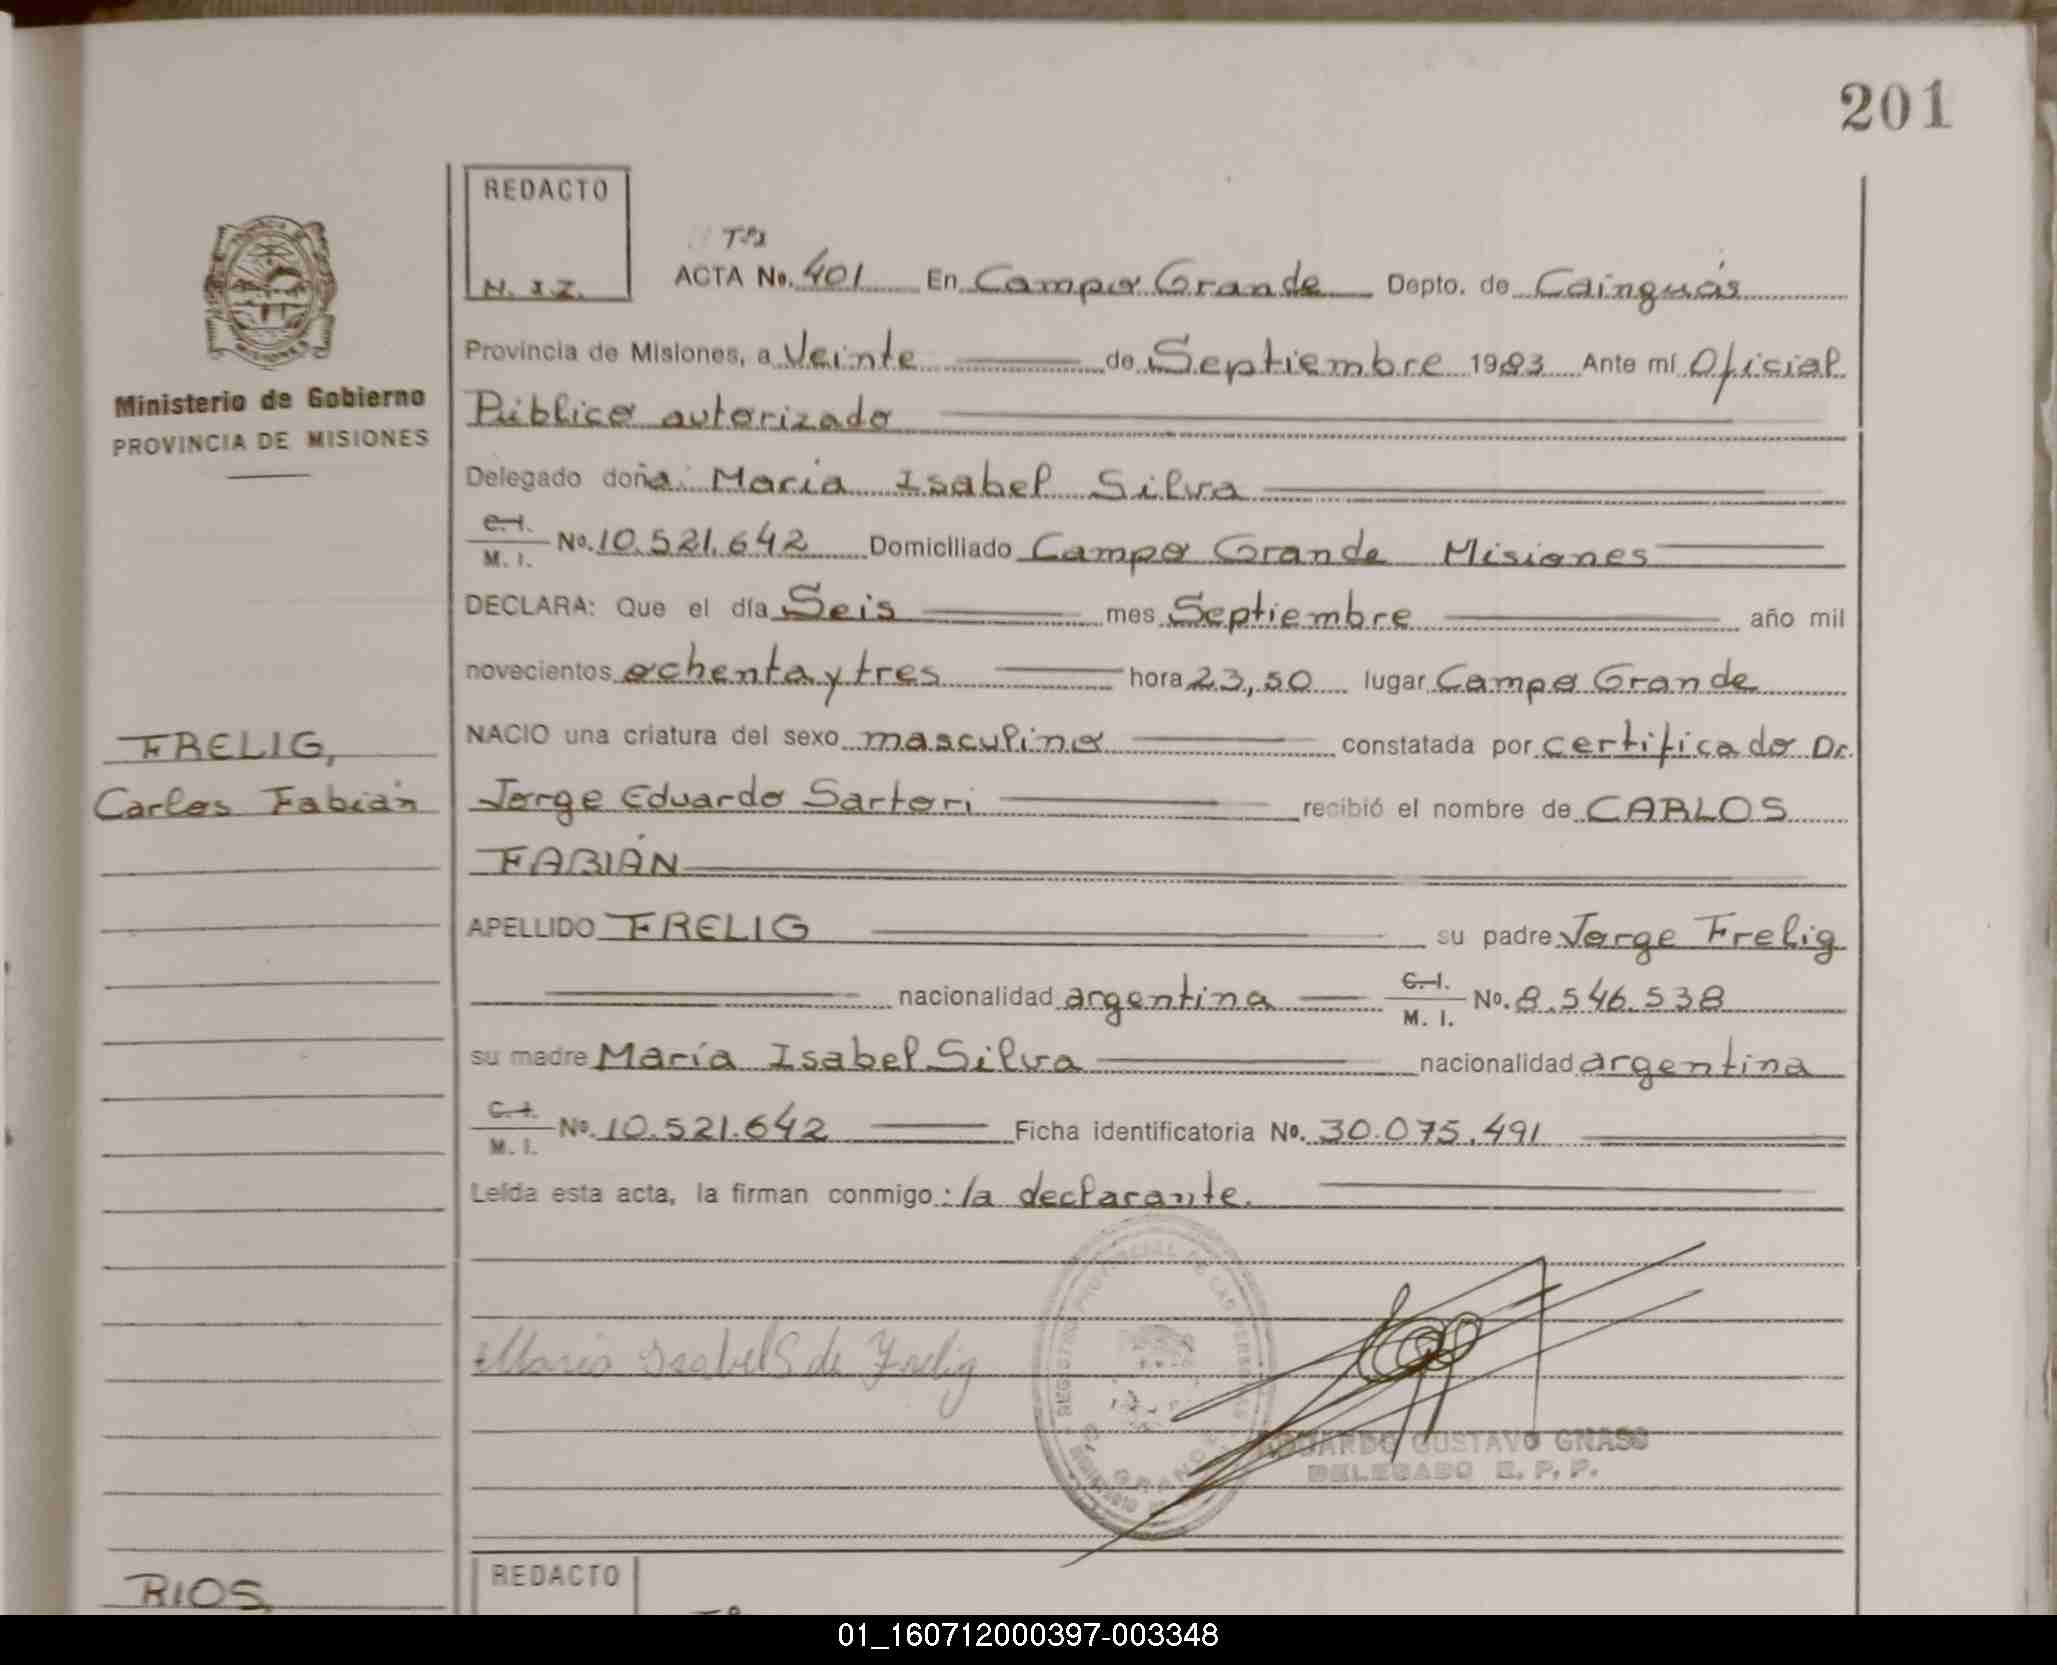 201
REDACTO
N. I. Z.
ACTA No. 401 En Campo Grande Depto. de Cainguás
Provincia de Misiones, a Veinte de Septiembre 1983 Ante mí Oficial
Público autorizado
Delegado doña: María Isabel Silva
C. I.
M. I. No. 10.521.642 Domiciliado Campo Grande Misiones
DECLARA: Que el día Seis mes Septiembre año mil
novecientos ochenta y tres hora 23,50 lugar Campo Grande
NACIO una criatura del sexo masculino constatada por certificado Dr.
Jorge Eduardo Sartori recibió el nombre de CARLOS
FABIÁN
APELLIDO FRELIG su padre Jorge Frelig
nacionalidad argentina C. I. M. I. No. 8.546.538
su madre María Isabel Silva nacionalidad argentina
C. I.
M. I. No. 10.521.642 Ficha identificatoria No. 30.075.491
Leída esta acta, la firman conmigo: la declarante.
Maria Isabel S de Frelig
REGISTRO PROVINCIAL DE LAS PERSONAS
GRANDE
EDUARDO GUSTAVO GNASS
DELEGADO R. P. P.
Ministerio de Gobierno
PROVINCIA DE MISIONES
FRELIG,
Carlos Fabián
RIOS,
REDACTO
01_160712000397-003348